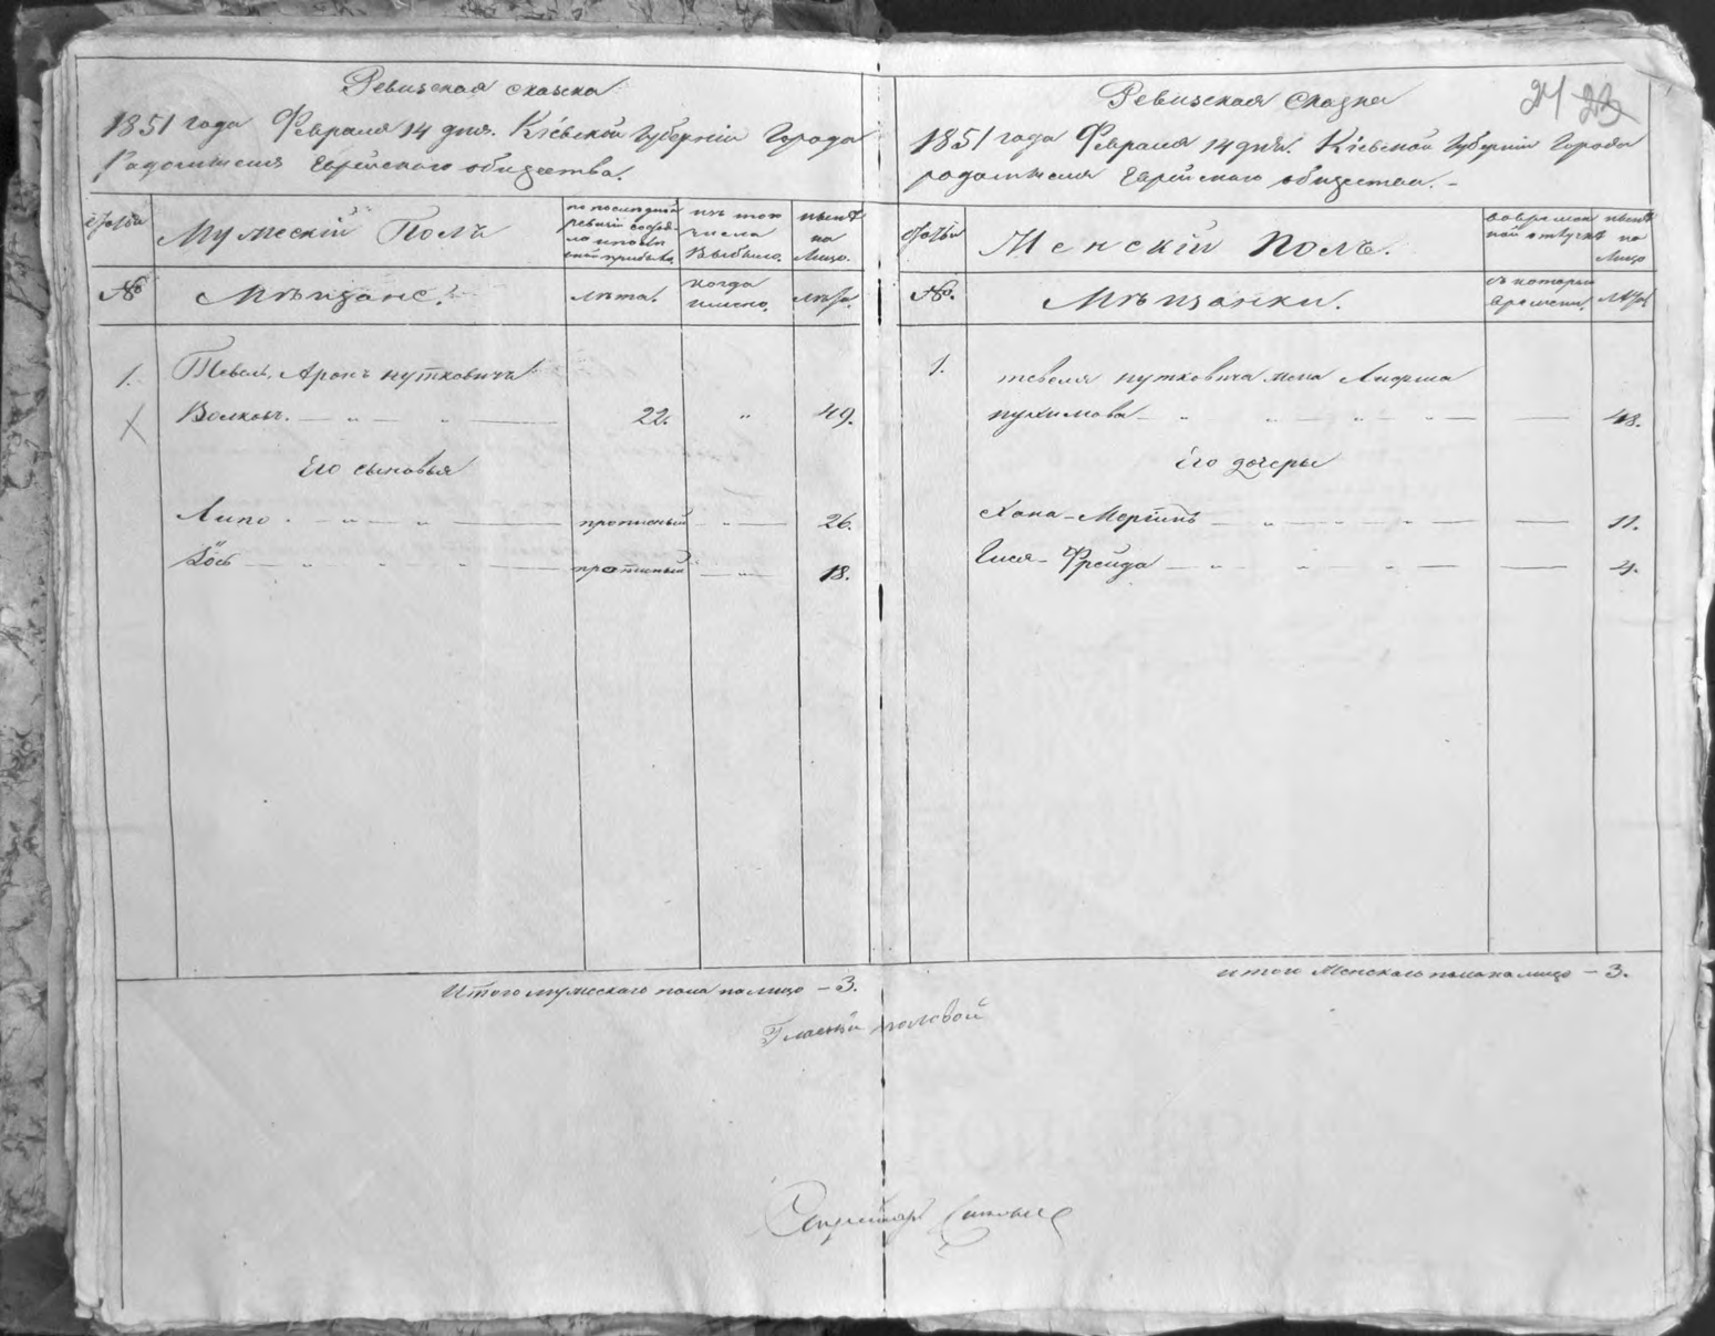 Ревизская сказка
1851 года Февраля 14 дня. Кіевской Губерніи Города
Радомысля Еврейского общества.
Мужескій Полъ
по последней ревизіи состояло и после оной прибыло.
изъ того числа Выбыло.
ныне на Лицо.
№
Мѣщане.
лѣта.
когда именно.
лѣта.
1.
Тевель, Аронъ нутковичъ
Волковъ. 22. " 49.
Его сыновья
Липо прописный 26.
Іось прописный 18.
Итого мужескаго пола налицо - 3.
Ревизская Сказка
24 23
1851 года Февраля 14 дня. Кіевской Губерніи Города
радомысля Еврейского общества. -
Женскій Полъ.
во временной отлучке
ныне на Лицо
№.
Мѣщанки.
съ котораго времени.
лѣта
1.
тевеля нутковича жена
48.
Его дочеры
Хана- 11.
Гися-Фрейда 4.
итого Женскаго пола на лицо - 3.
Гласный
Секретарь